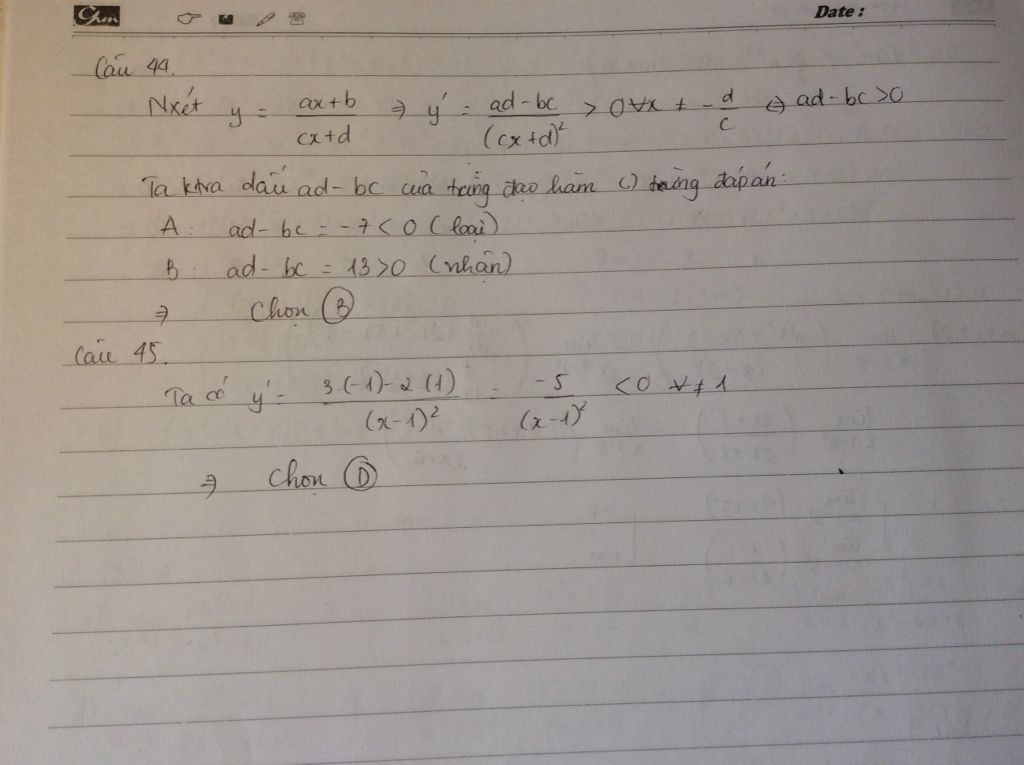 Chm
Date :
Câu 44.
Nxét y = \frac{ax+b}{cx+d} ⇒ y' = \frac{ad-bc}{(cx+d)^2} > 0 ∀x ≠ -\frac{d}{c} ⇔ ad-bc>0
Ta ktra dấu ad-bc của từng đạo hàm () từng đáp án:
A: ad-bc = -7<0 (loại)
B: ad-bc = 13>0 (nhận)
⇒ Chọn B
Câu 45.
Ta có y' = \frac{3.(-1)-2.(1)}{(x-1)^2} = \frac{-5}{(x-1)^2} <0 ∀ ≠ 1
⇒ Chọn D